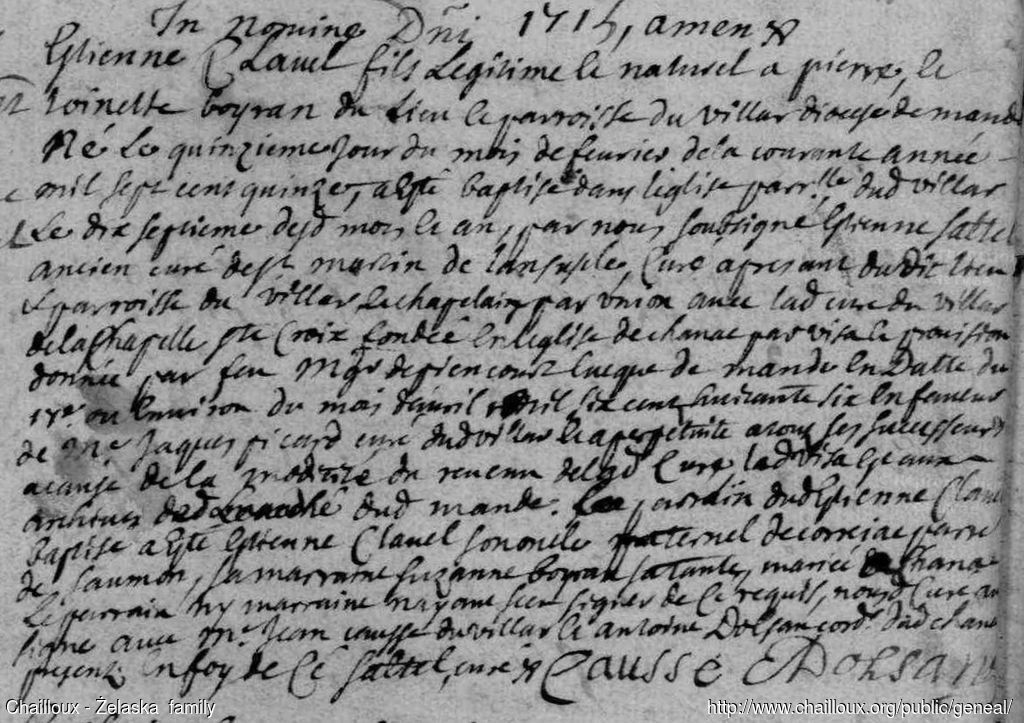 In nomine Dni 1715, amen
Estienne Clavel fils Legitime et naturel a pierre, et
toinette boyran du Lieu et parroisse du villar diocese de mande
Né Le quinzieme Jour du mois de feurier de la courante année
mil sept cent quinze, a Esté baptisé dans leglise parr.lle dud villar
Le dix septieme desd mois et an, par nous soubsigné Estienne Saltel
ancien curé de st martin de lansuscle, Curé apresant dudit lieu
& parroisse du villar et chapelain par union avec lad cure du villar
de la Chapelle ste Croix fondée en leglise de chanac par visa et provision
donnée par feu Mgr de piencourt Eveque de mande en Datte du
ou Environ du mois d'auril mil six cent huitante six en faveur
de Mre Jaques picard curé dud villar et a perpetuité a tous ses sucesseurs
acause de la modicité du revenu de lad Cure lad visa est aux
archives dud mande. Le parrain dud Estienne Clavel
baptisé a esté Estienne Clavel son oncle paternel de correiac parre
de Saumon, sa marraine suzanne boyran sa tante, mariée a Chanac
Le parrain ny marraine nayant sceu signer de ce requis, nousd Curé an
signé avec Mre Jean causse du villar et antoine Dolsan cord. dud chanac
presents. En foy de Ce Saltel, curé Causse ADolsan
Chailloux - Żelaska family
http://www.chailloux.org/public/geneal/